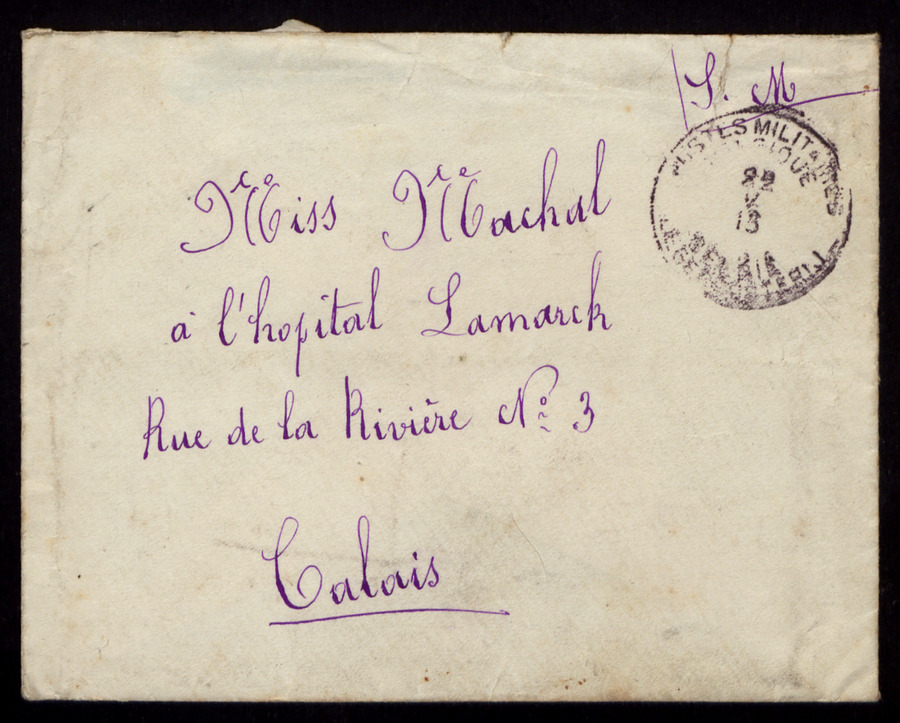 S. M
POSTES MILITAIRES
BELGIQUE
22
V
15
Miss Machal
à l'hopital Lamarck
Rue de la Rivière Nº 3
Calais